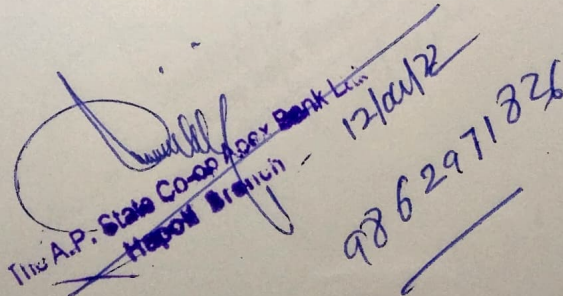 The A.P. State Co-op Apex Bank Ltd.
Hapoli Branch
12/04/22
9862971826